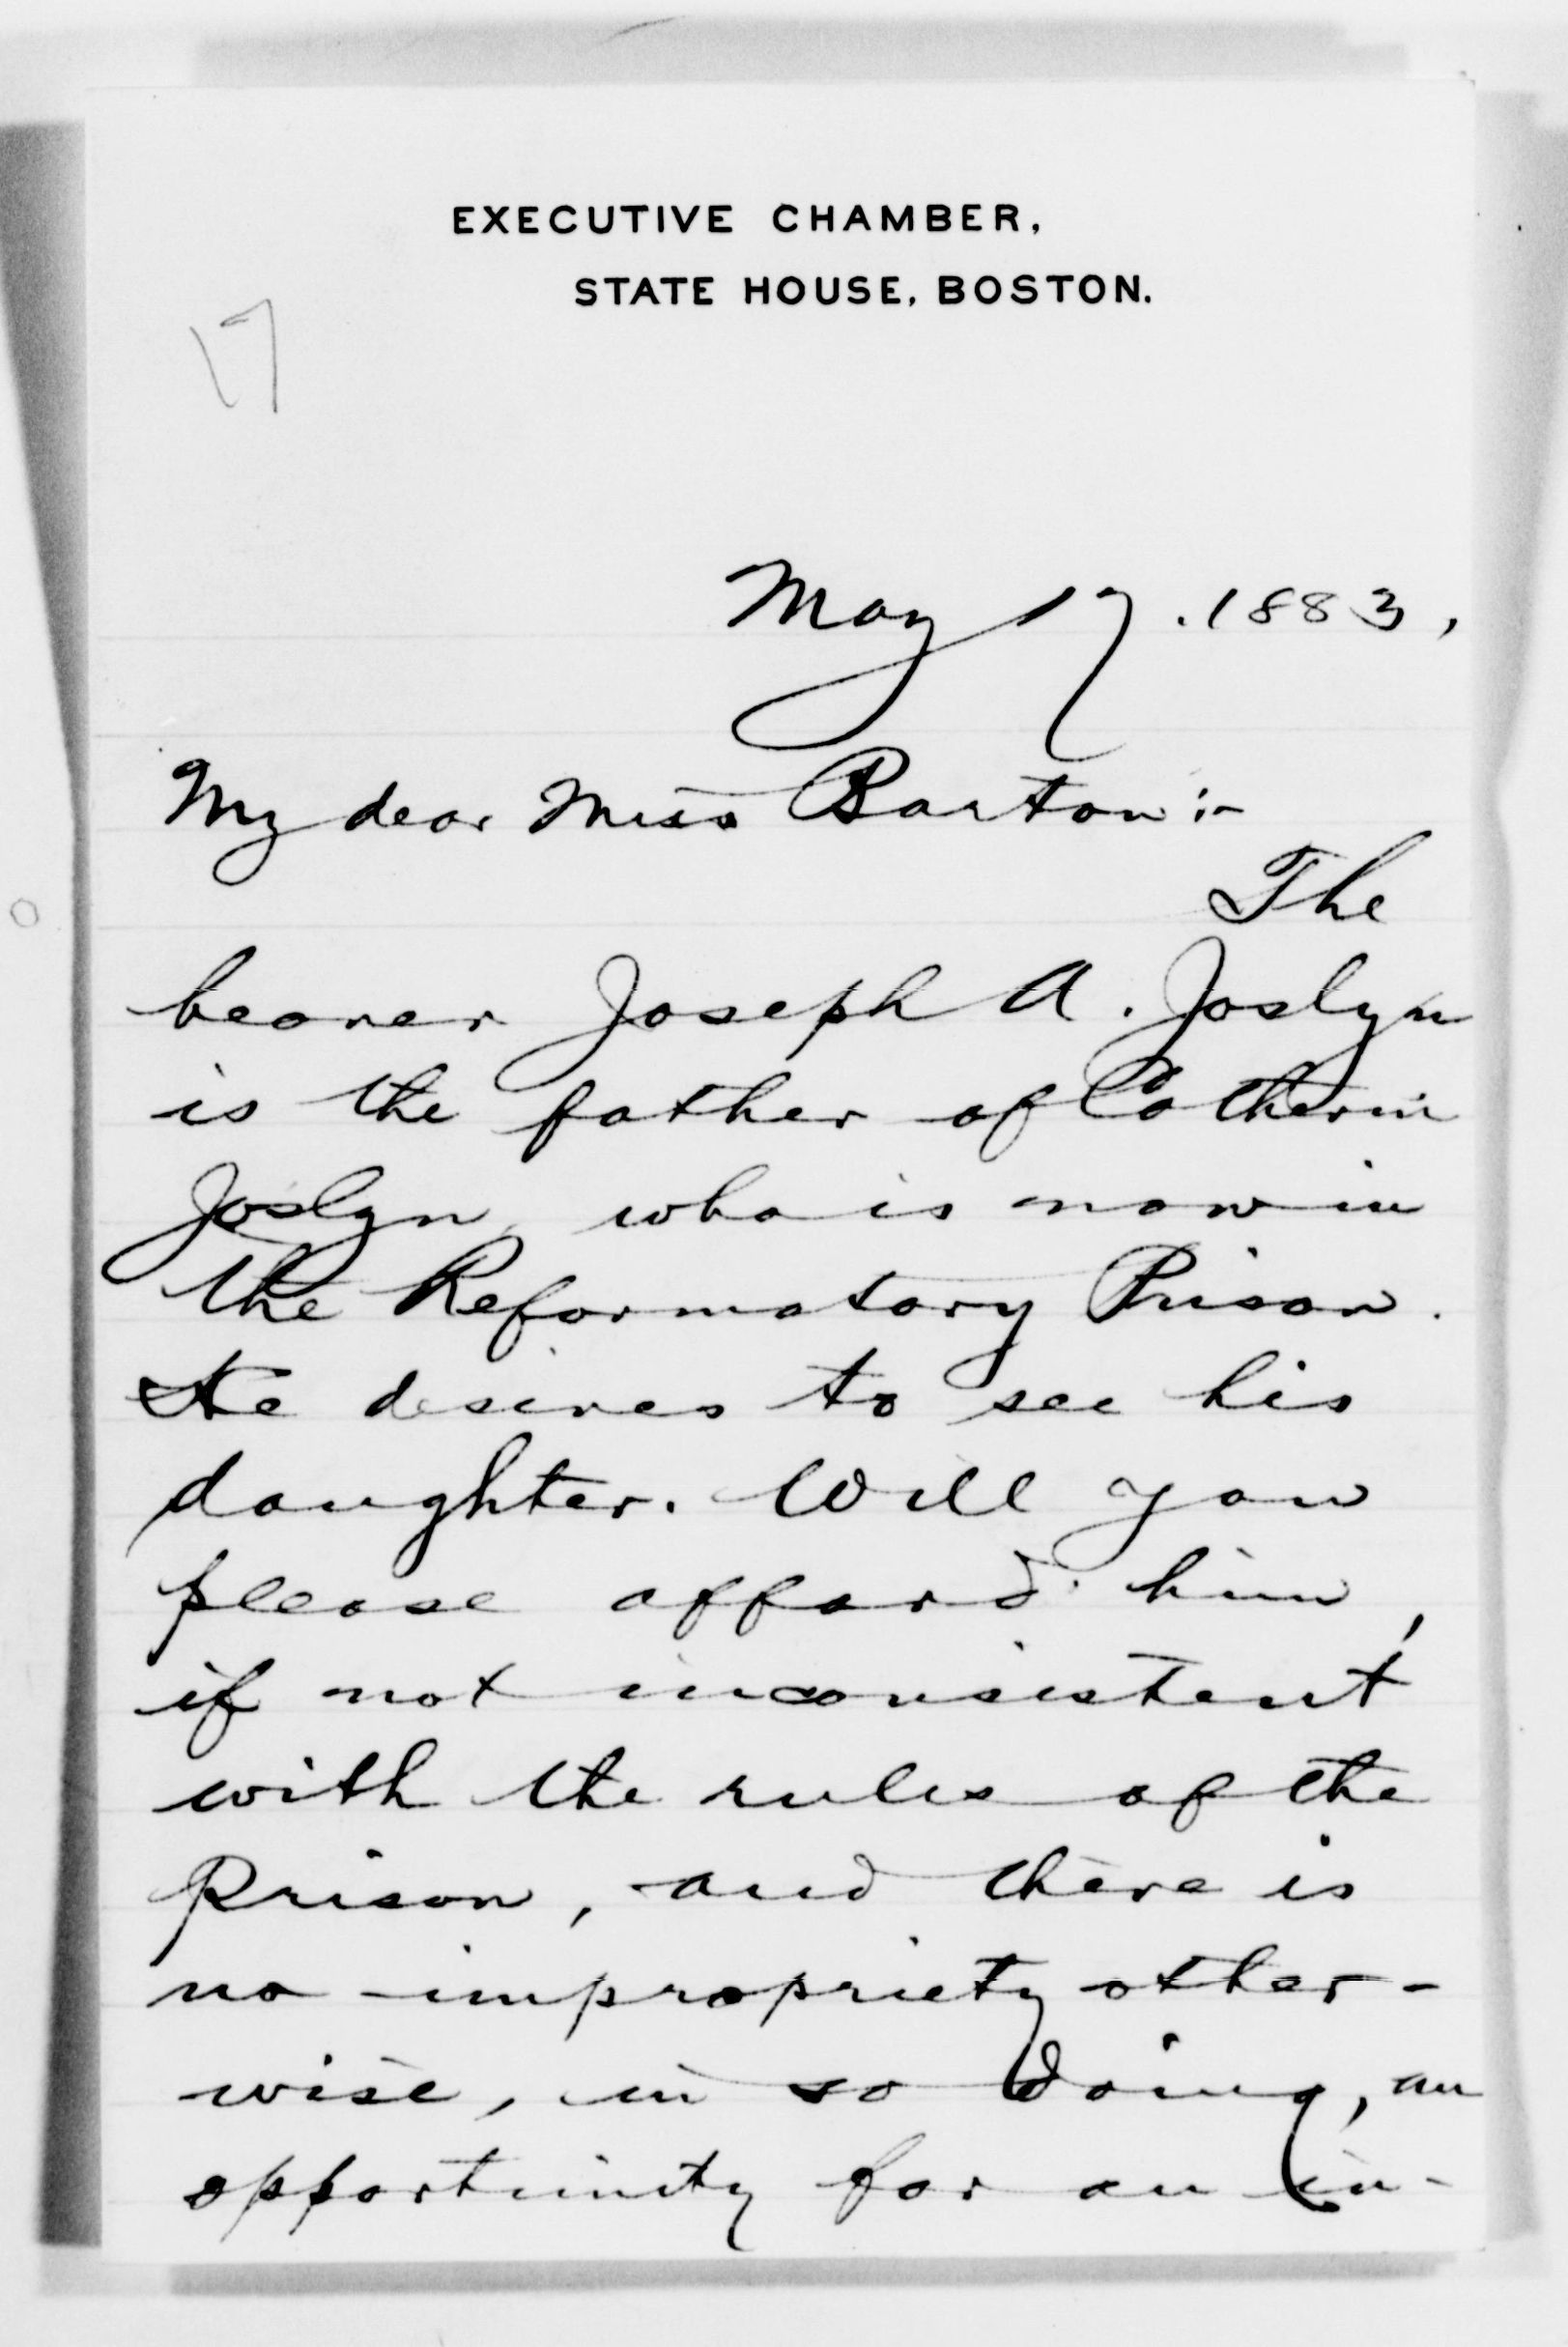 EXECUTIVE CHAMBER,
STATE HOUSE, BOSTON.
17
May 17. 1883,
My dear Miss Barton:-
The
bearer Joseph A. Joslyn
is the father of Catherin
Joslyn, who is now in
the Reformatory Prison.
He desires to see his
daughter. Will you
please afford him,
if not inconsistent
with the rules of the
Prison, and there is
no impropriety other-
wise, in so doing, an
opportunity for an in-